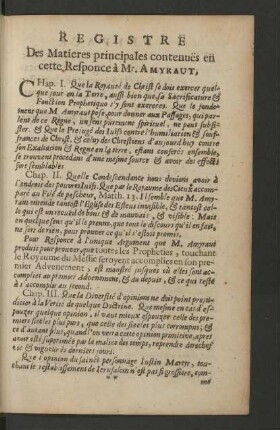 REGISTRE
Des Matieres principales contenuës en
cette Responce à Mr. AMYRAUT,
CHap. I. Que la Royauté de Christ se doit exercer quel-
que jour en la Terre, aussi bien que sa Sacrificature &
Fonction Prophetique s'y sont exercees. Que le fonde-
ment que Mr. Amyraut pose, pour donner aux Passages, qui par-
lent de ce Regne, un sens purement spirituel, ne peut subsi-
ster. & Que le Prejugé des Juifs contre l'humiliation & souf-
frances de Christ, & celuy des Chrestiens d'aujourd'huy contre
son Exaltation & Regne en la terre, estans conferés ensemble,
se trouvent proceder d'une mesme source & avoir des effects
fort semblables.
Chap. II. Quelle Condescendance nous devions avoir à
l'endroit des pauvres Juifs. Que par le Royaume des Cieux accom-
paré au Filé de pescheur, Matth. 13. il semble que M. Amy-
raut entende tantost l'Eglise des Esleus invisible, & tantost cel-
le qui est un recueil de bons & de mauvais, & visible: Mais
en quelque sens qu'il le prenne, que tout le discours qu'il en fait,
ne sert de rien, pour prouver ce qu'il s'estoit promis.
Pour Responce à l'unique Argument que M. Amyraut
produit pour prouver, que toutes les Propheties, touchant
le Royaume du Messie seroyent accomplies en son pre-
mier Advenement, est monstré jusques où elles sont ac-
complies au premier Advenement, & au depuis, & ce qui reste
à s'accomplir au second.
Chap. III. Que la Diversité d'opinions ne doit point prejudi-
cier à la Verité de quelque Doctrine. Que mesme en cas d'es-
pouzer quelque opinion, il vaut mieux espouzer celle des pre-
miers siecles plus purs, que celle des siecles plus corrompus, &
ce d'autant plus, quand l'on verra cette opinion premiere, apres
avoir esté supprimée par la malice des temps, reprendre derechef
& vigueur és derniers jours.
Que l'opinion du sainct personnage Justin Martyr, tou-
chant le restablissement de Jerusalem n'est pas si grossiere, com-
**
me